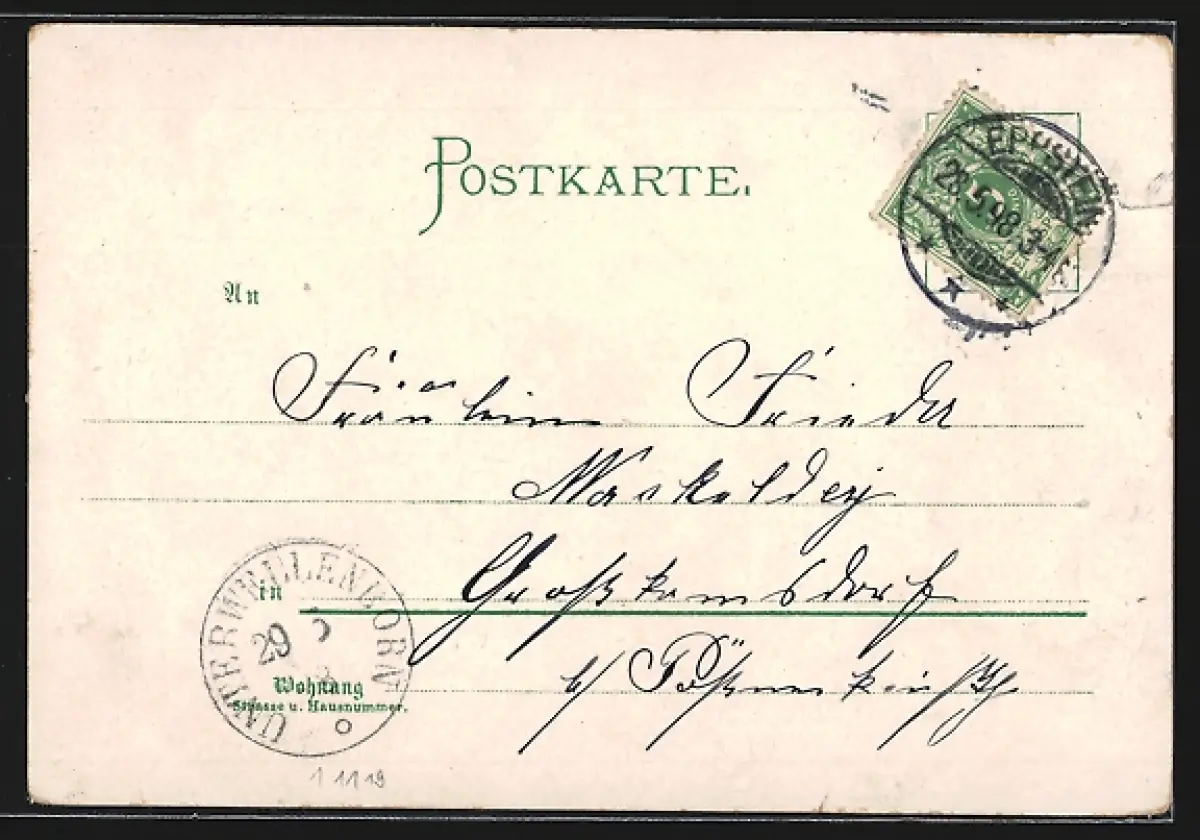 POSTKARTE.
EPPSTEIN
28.5.98 3-4
An
Fräulein Frieda
Mackeldey
Großkamsdorf
in
b/ Pößneck
UNTERWELLENBORN
29 5
Wohnung
Strasse u. Hausnummer.
1 11 19